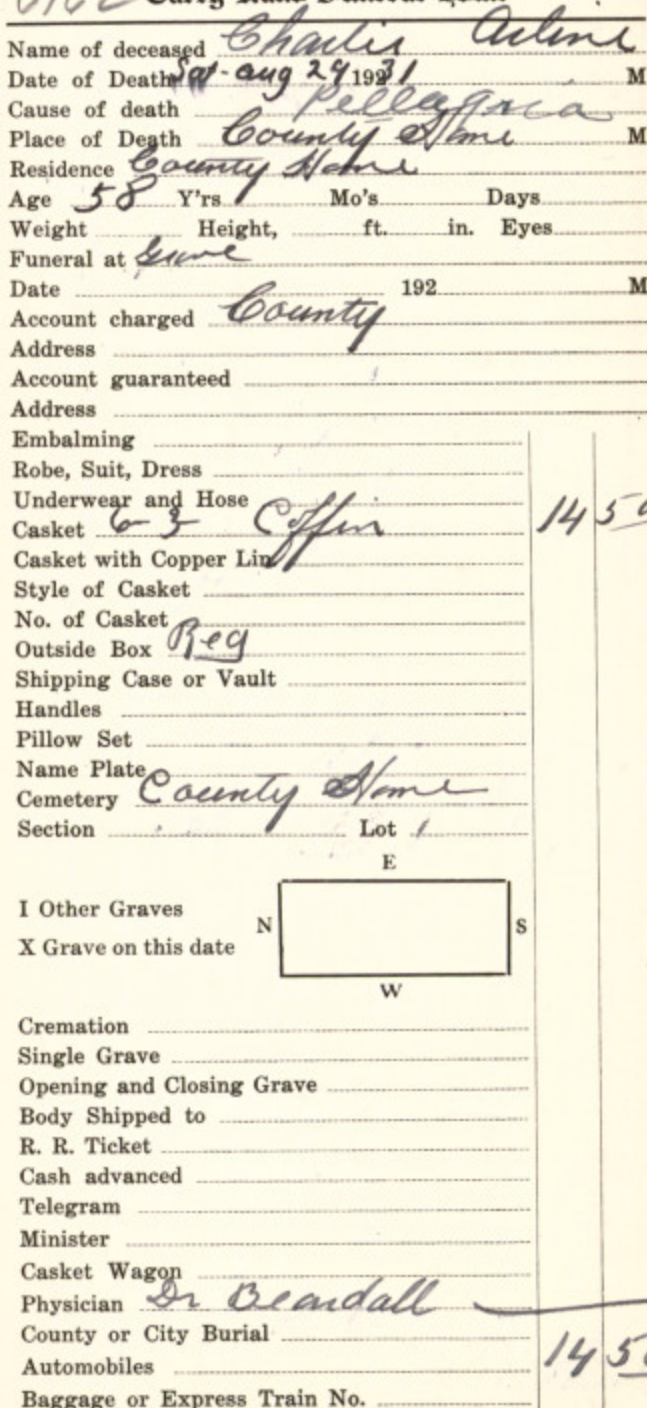 Carey Hand Funeral Home
Name of deceased Charlie Arline
Date of Death Sat-aug 29 1931 M
Cause of death Pellagria
Place of Death County Home M
Residence County Home
Age 58 Y'rs Mo's Days
Weight Height, ft. in. Eyes
Funeral at Grave
Date 192 M
Account charged County
Address
Account guaranteed
Address
Embalming
Robe, Suit, Dress
Underwear and Hose
Casket 6-3 Coffin 14 50
Casket with Copper Lin
Style of Casket
No. of Casket
Outside Box Reg
Shipping Case or Vault
Handles
Pillow Set
Name Plate
Cemetery County Home
Section Lot
E
I Other Graves
N S
X Grave on this date
W
Cremation
Single Grave
Opening and Closing Grave
Body Shipped to
R. R. Ticket
Cash advanced
Telegram
Minister
Casket Wagon
Physician Dr Beardall
County or City Burial
Automobiles 14 50
Baggage or Express Train No.